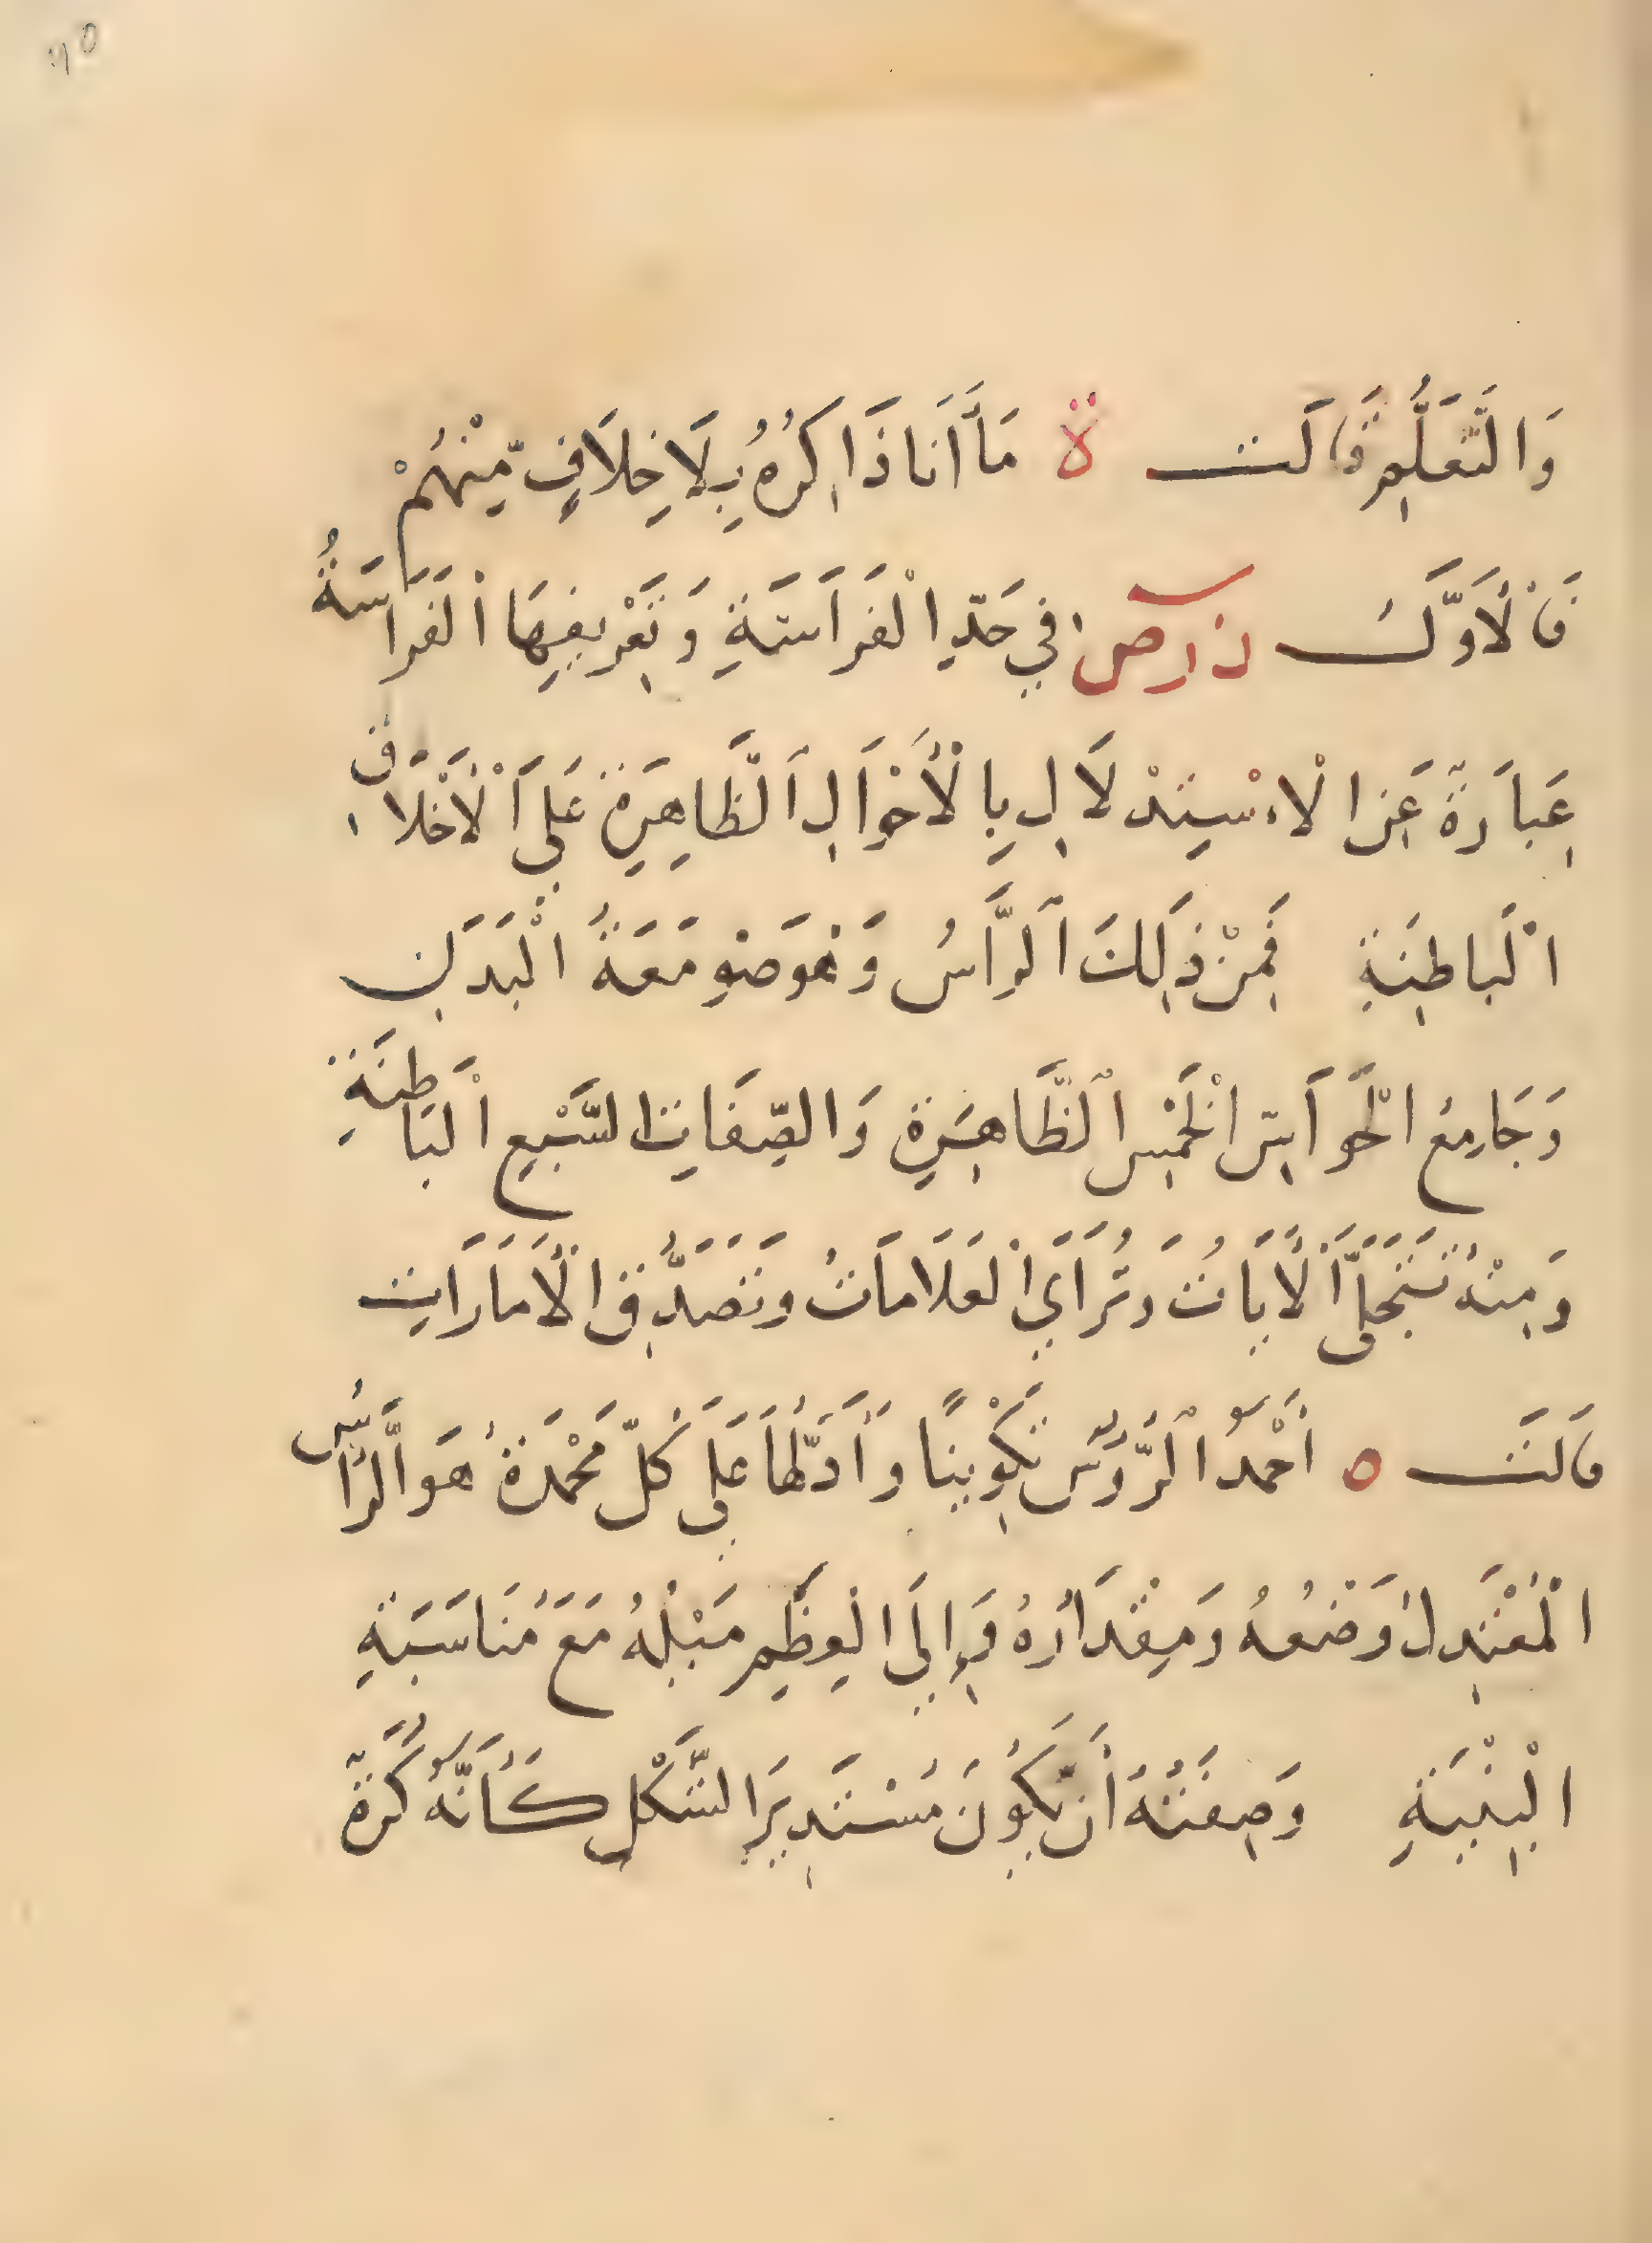 وَالتَّعَلُّمِ قَالَت ة مَا أَنَا ذَاكِرُهُ بِلَا خِلَافٍ مِّنْهُمْ
فَالْأَوَّلُ في حَدِّ الْفَرَاسَةِ وَتَعْرِيفِهَا اَلْفَرَاسَةُ
عِبَارَةٌ عَنِ الْاِسْتِدْلَالِ بِالْأَحْوَالِ الظَّاهِرَةِ عَلَى الْأَخْلَاقِ
الْبَاطِنَةِ فَمِنْ ذَلِكَ الرَّأسُ وَهُوَ صَوْمَعَةُ الْبَدَنِ
وَجَامِعُ الْحَوَاسِّ الْخَمْسِ الظَّاهِرَةِ وَالصِّفَاتِ السَّبْعِ الْبَاطِنَةِ
وَمِنْهُ تَتَجَلَّى الْأَيَاتُ وَتُرَاَي الْعَلَامَاتُ وَتَصَدَّقُ الْأَمَارَاتِ
قَالَت ه أَحْمَدُ الرُّؤُسِ تَكْوِينًا وَأَدَلُّهَا عَلَى كُلِّ مَحْمَدَةٍ هَوَ الرَّأسُ
الْمُعْتَدِلُ وَضْعُهُ وَمِقْدَارُهُ وَإِلَى الْعِظَمِ مَيْلُهُ مَعَ مُنَاسَبَةِ
الْبِنْيَةِ وَصِفَتُهُ أَن يَكُونَ مُسْتَدِيرَ الشَّكْلِ كَأَنَّهُ كُرَةٌ
٦٥